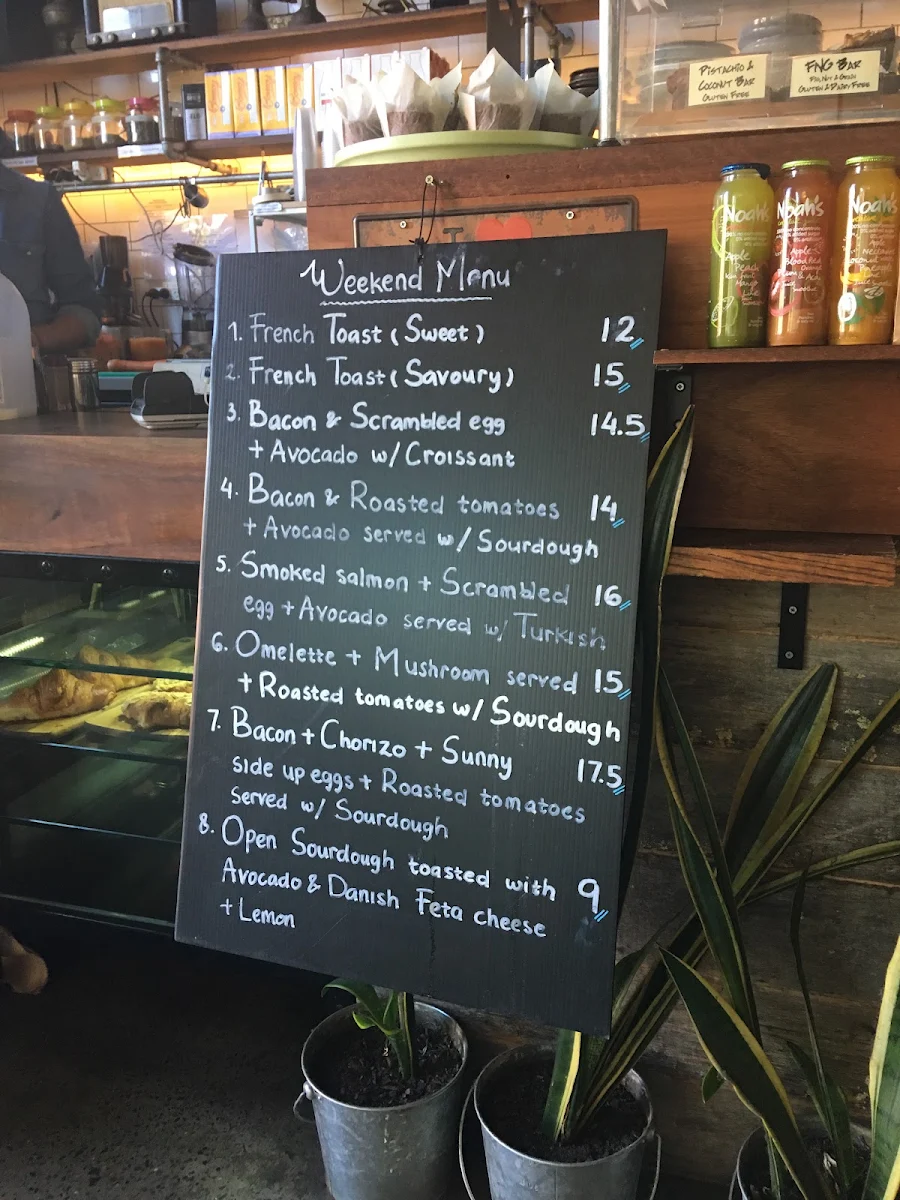 Pistachio &
Coconut Bar
Gluten Free
FNG Bar
Gluten & Dairy Free
I
Noah's
Noah's
Noah's
Apple
Peach
Apple
Apple
Weekend Menu
1. French Toast (Sweet) 12
2. French Toast (Savoury) 15
3. Bacon & Scrambled egg 14.5
+ Avocado w/ Croissant
4. Bacon & Roasted tomatoes 14
+ Avocado served w/ Sourdough
5. Smoked salmon + Scrambled 16
egg + Avocado served w/ Turkish
6. Omelette + Mushroom served 15
+ Roasted tomatoes w/ Sourdough
7. Bacon + Chorizo + Sunny 17.5
side up eggs + Roasted tomatoes
served w/ Sourdough
8. Open Sourdough toasted with 9
Avocado & Danish Feta cheese
+ Lemon